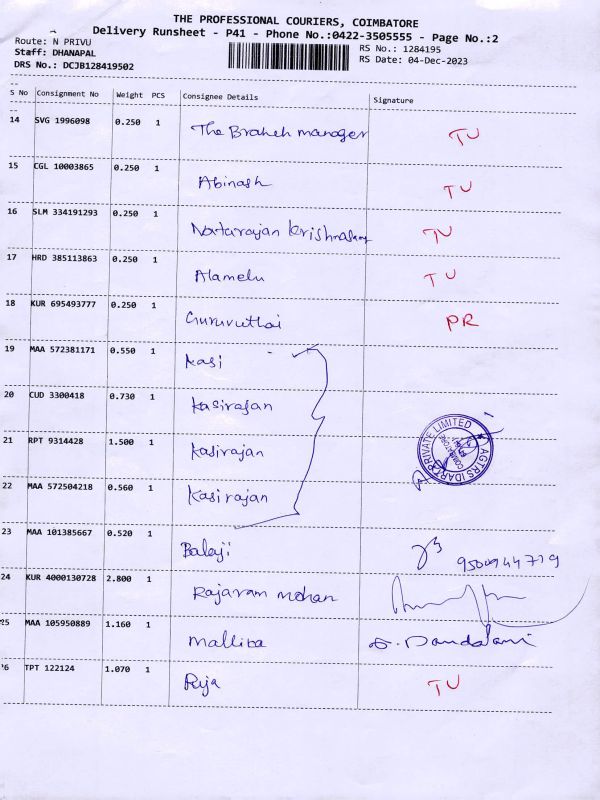 THE PROFESSIONAL COURIERS, COIMBATORE
Delivery Runsheet - P41 - Phone No.:0422-3505555 - Page No.:2
Route: N PRIVU RS No.: 1284195
Staff: DHANAPAL RS Date: 04-Dec-2023
DRS No.: DCJB128419502
S No Consignment No Weight PCS Consignee Details Signature
14 SVG 1996098 0.250 1 The Braheh manager TU
15 CGL 10003865 0.250 1 Abinash TU
16 SLM 334191293 0.250 1 Natarajan TU
17 HRD 385113863 0.250 1 Alamelu TU
18 KUR 695493777 0.250 1 Guruvuthai PR
19 MAA 572381171 0.550 1 Kasi
20 CUD 3300418 0.730 1 Kasirajan
21 RPT 9314428 1.500 1 Kasirajan
22 MAA 572504218 0.560 1 Kasirajan
PRIVATE LIMITED
23 MAA 101385667 0.520 1 Balaji 9500944719
24 KUR 4000130728 2.800 1 Rajaram mohan
25 MAA 105950889 1.160 1 Malliba
26 TPT 122124 1.070 1 TU